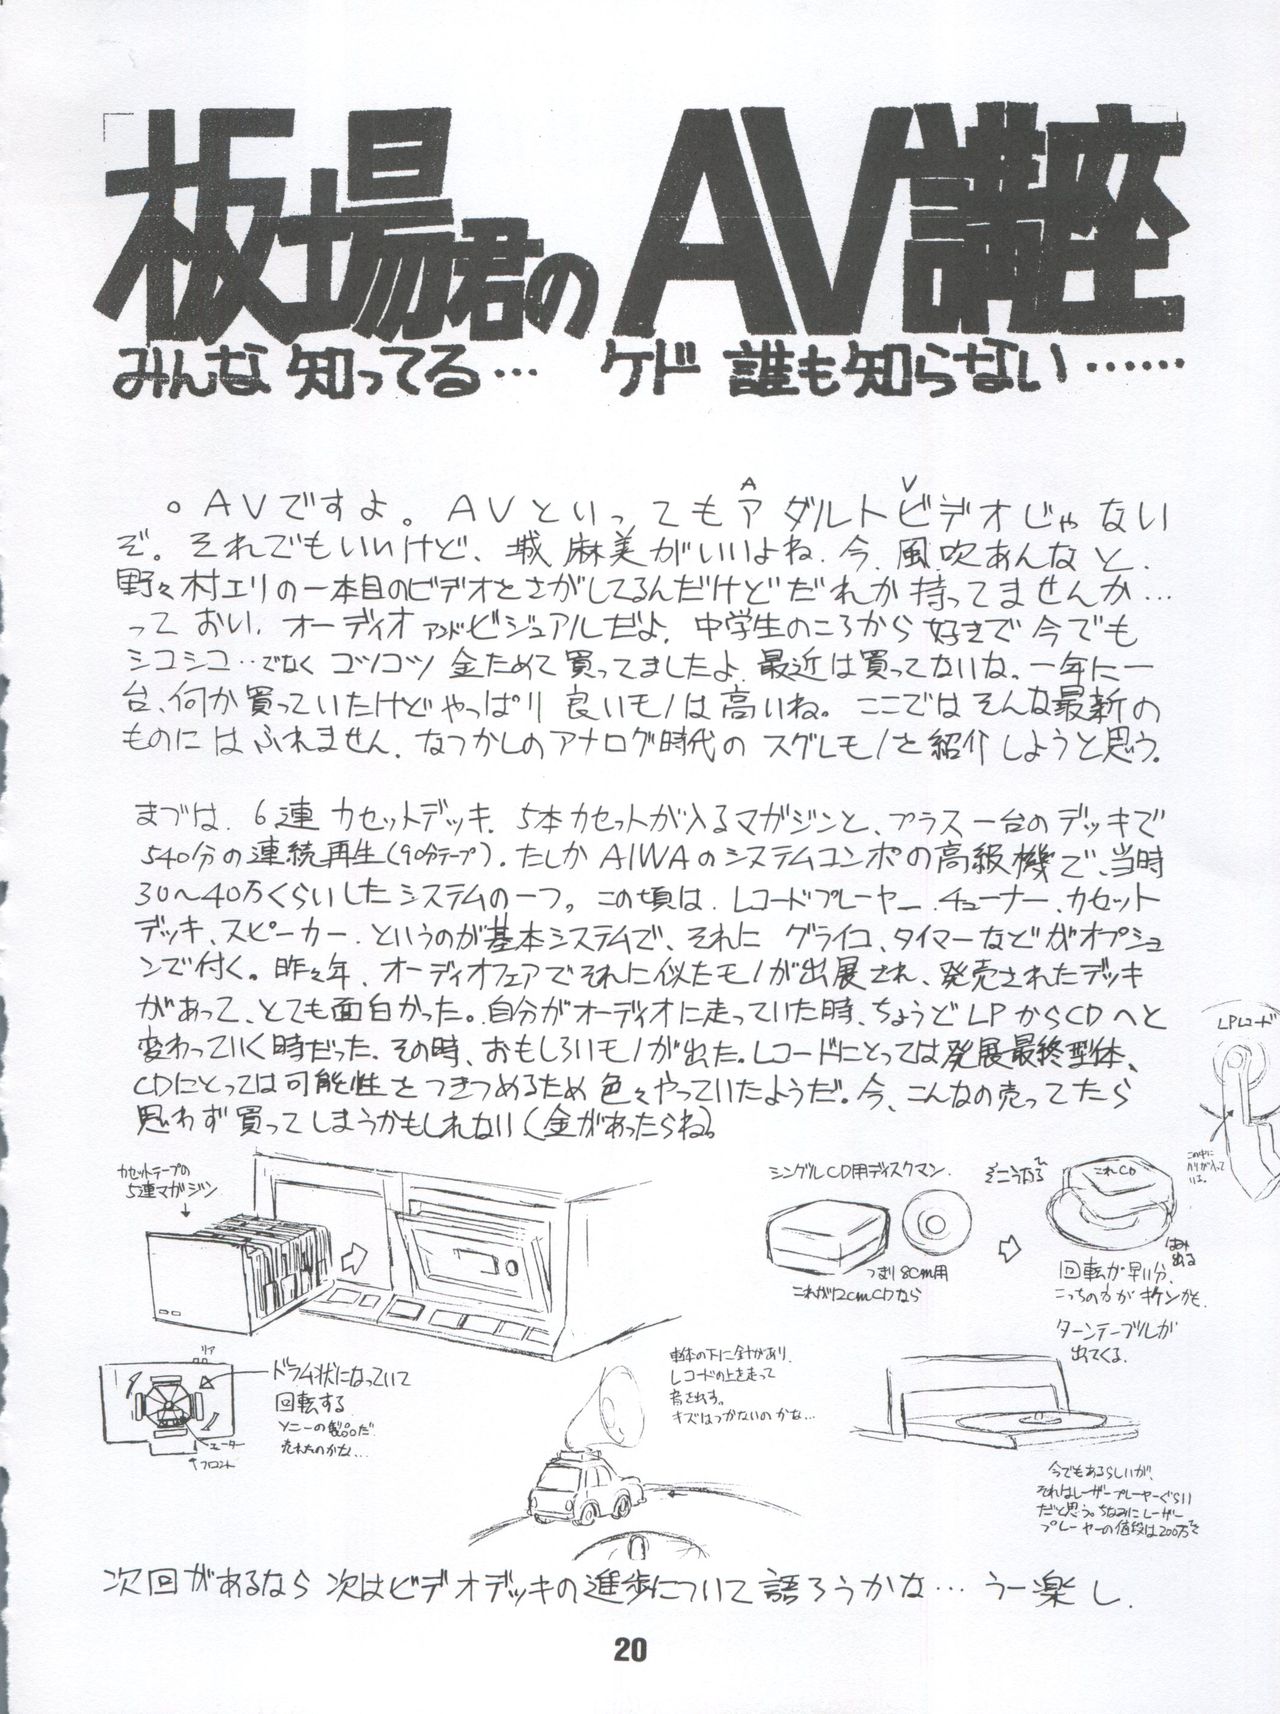 「板場君のAV講座」
みんな知ってる… ケド 誰も知らない……
。AVですよ。AVといってもアダルトビデオじゃない
A V
ぞ。それでもいいけど、城麻美がいいよね.今、風吹あんなと、
野々村エリの一本目のビデオとさがしてるんだけどだれか持ってませんか…
って おい、オーディオアンドビジュアルだよ.中学生のころから好きで今でも
シコシコ…でなく コツコツ金ためて買ってましたよ.最近は買ってないな。一年に一
台、何か買っていたけどやっぱり良いモノは高いね。ここではそんな最新の
ものにはふれません.なつかしのアナログ時代のスグレモノを紹介しようと思う。
まづは、6連カセットデッキ.5本カセットが入るマガジンと、プラス一台のデッキで
540分の連続再生(90分テープ).たしかAIWAのシステムコンポの高級機で、当時
30〜40万くらいしたシステムの一つ。この頃は、レコードプレーヤー.チューナー、カセット
デッキ、スピーカー.というのが基本システムで、それに グライコ、タイマーなどがオプショ
ンで付く。昨々年、オーディオフェアでそれに似たモノが出展され、発売されたデッキ
があって、とても面白かった。自分がオーディオに走っていた時、ちょうどLPからCDへと
変わっていく時だった.その時、おもしろいモノが出た。レコードにとっては発展最終型体、
CDにとっては可能性をつきつめるため色々やっていたようだ。今、こんなの売ってたら
思わず買ってしまうかもしれない(金があったらね。
LPレコード
この中に
ハリが入って
いる。
カセットテープの
5連マガジン
シングルCD用ディスクマン.
つまり8cm用
これが12cmCDなら
そこうなる
これCD
はみ
出る
回転が早い分、
こっちの方がキケンかも.
リア
ドラム状になっていて
回転する
ソニーの製品だ
売れたのかな…
モーター
フロント
車体の下に針があり、
レコードの上を走って
音を出す。
キズはつかないのかな…
ターンテーブルが
出てくる.
今でもあるらしいが、
それはレーザープレーヤーぐらい
だと思う。ちなみにレーザー
プレーヤーの値段は200万で
次回があるなら次はビデオデッキの進歩について語ろうかな… うー楽し.
20